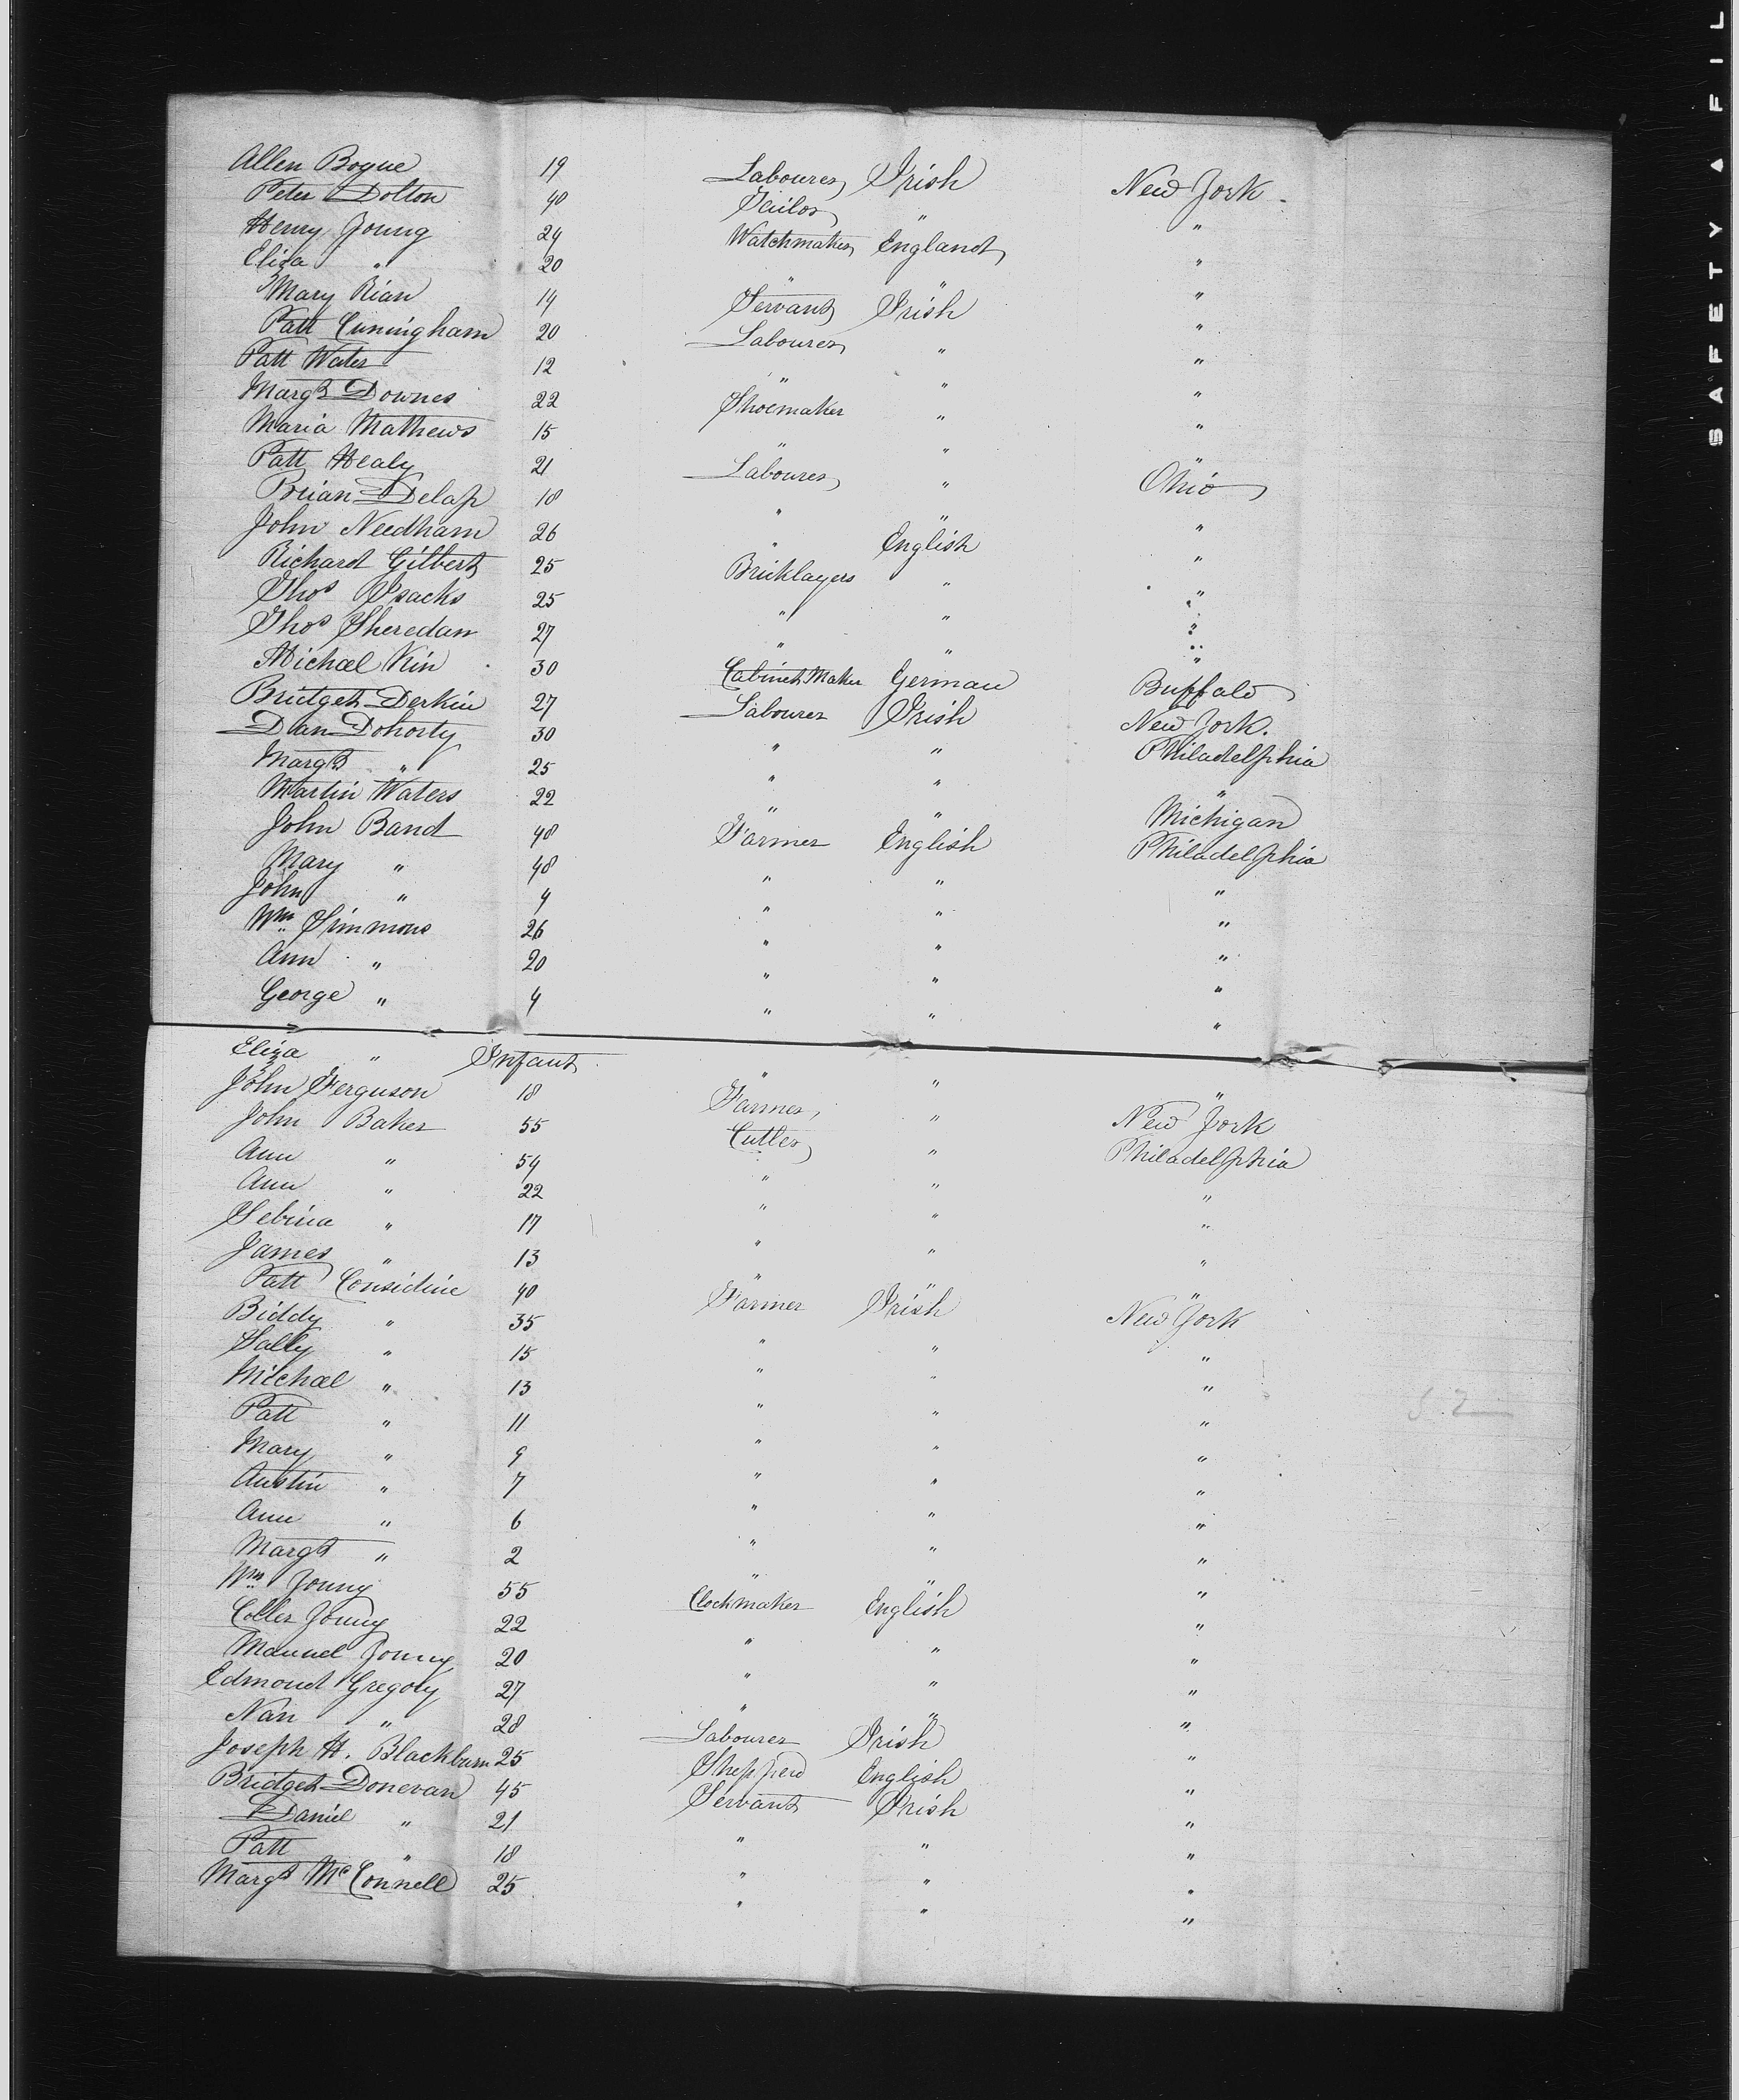 Allen Bogue 19 Labourer Irish New York.
Peter Dolton 40 Tailor " "
Henry Young 24 Watchmaker England "
Eliza " 20 " " "
Mary Rian 14 Servant Irish "
Patt Cuningham 20 Labourer " "
Patt Water 12 " " "
Margt Downes 22 Shoemaker " "
Maria Mathews 15 " " "
Patt Healy 21 Labourer " Ohio
Brian Delap 18 " " "
John Needham 26 " English "
Richard Gilbert 25 Bricklayers " "
Thos Isacks 25 " " "
Thos Sheredan 27 " " "
Michael Kin 30 Cabinet Maker German Buffalo
Bridget Derkin 27 Labourer Irish New York.
Dan Dohorty 30 " " Philadelphia
Margt " 25 " " "
Martin Waters 22 " " Michigan
John Band 48 Farmer English Philadelphia
Mary " 48 " " "
John " 4 " " "
Wm Simmons 26 " " "
Ann " 20 " " "
George " 4 " " "
Eliza " Infant " " "
John Ferguson 18 Farmer " New York
John Baker 55 Cutler " Philadelphia
Ann " 54 " " "
Ann " 22 " " "
Sebina " 17 " " "
James " 13 " " "
Patt Considine 40 Farmer Irish New York
Biddy " 35 " " "
Sally " 15 " " "
Michael " 13 " " "
Patt " 11 " " "
Mary " 9 " " "
Austin " 7 " " "
Ann " 6 " " "
Margt " 2 " " "
Wm Young 55 Clockmaker English "
Coller Young 22 " " "
Manuel Young 20 " " "
Edmond Gregory 27 " " "
Nan " 28 Labourer Irish "
Joseph H. Blackburn 25 Shepperd English "
Bridget Donevan 45 Servant Irish "
Daniel " 21 " " "
Patt " 18 " " "
Margt McConnell 25 " " "
SAFETY FIL